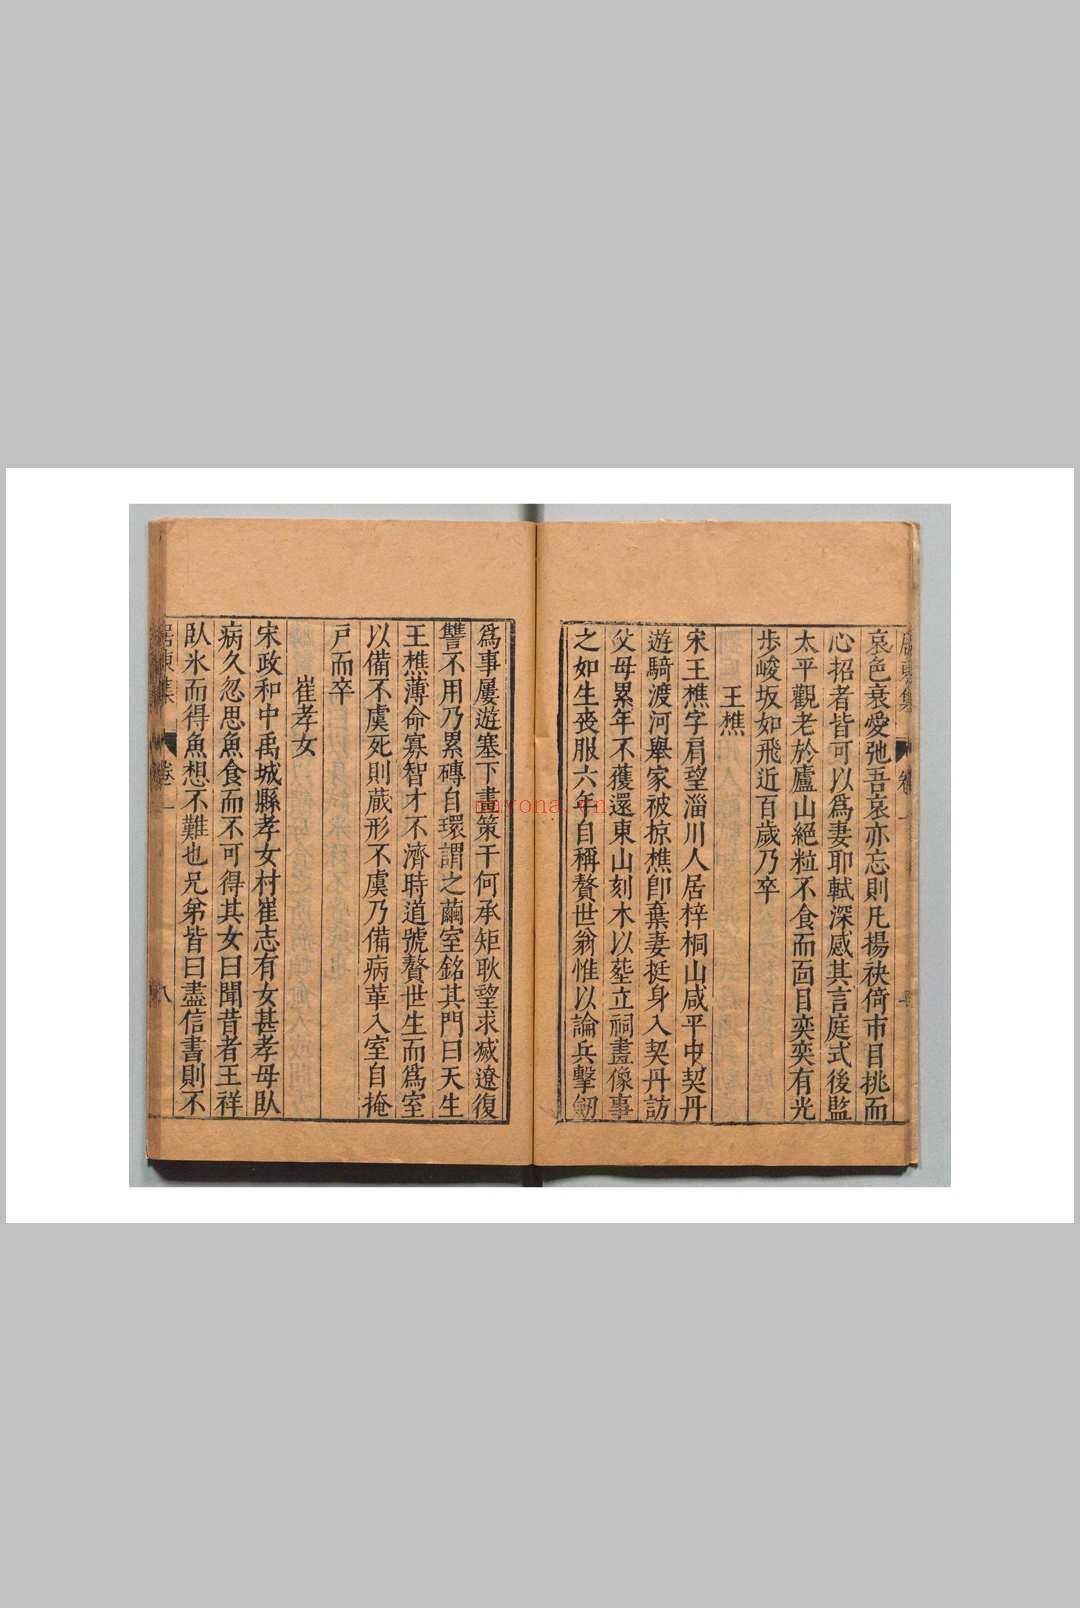 哀色衰愛弛吾哀亦忘則凡揚袂倚市目挑而
心招者皆可以爲妻耶軾深感其言庭式後監
太平觀老於廬山絕粒不食而靣目奕奕有光
步峻坂如飛近百歲乃卒
王樵
宋王樵字肩望淄川人居梓桐山咸平中契丹
遊騎渡河舉家被掠樵卽棄妻挺身入契丹訪
父母累年不獲還東山刻木以塟立祠畫像事
之如生丧服六年自稱贅世翁惟以論兵擊劒
爲事屢遊塞下畫策干何承矩耿望求滅遼復
讐不用乃累磚自環謂之繭室銘其門曰天生
王樵薄命寡智才不濟時道號贅世生而爲室
以備不虞死則蔵形不虞乃備病革入室自掩
戸而卒
崔孝女
宋政和中禹城縣孝女村崔志有女甚孝母臥
病久忽思魚食而不可得其女曰聞昔者王祥
臥氷而得魚想不難也兄弟皆曰盡信書則不
卷一
八
nnyona.cn